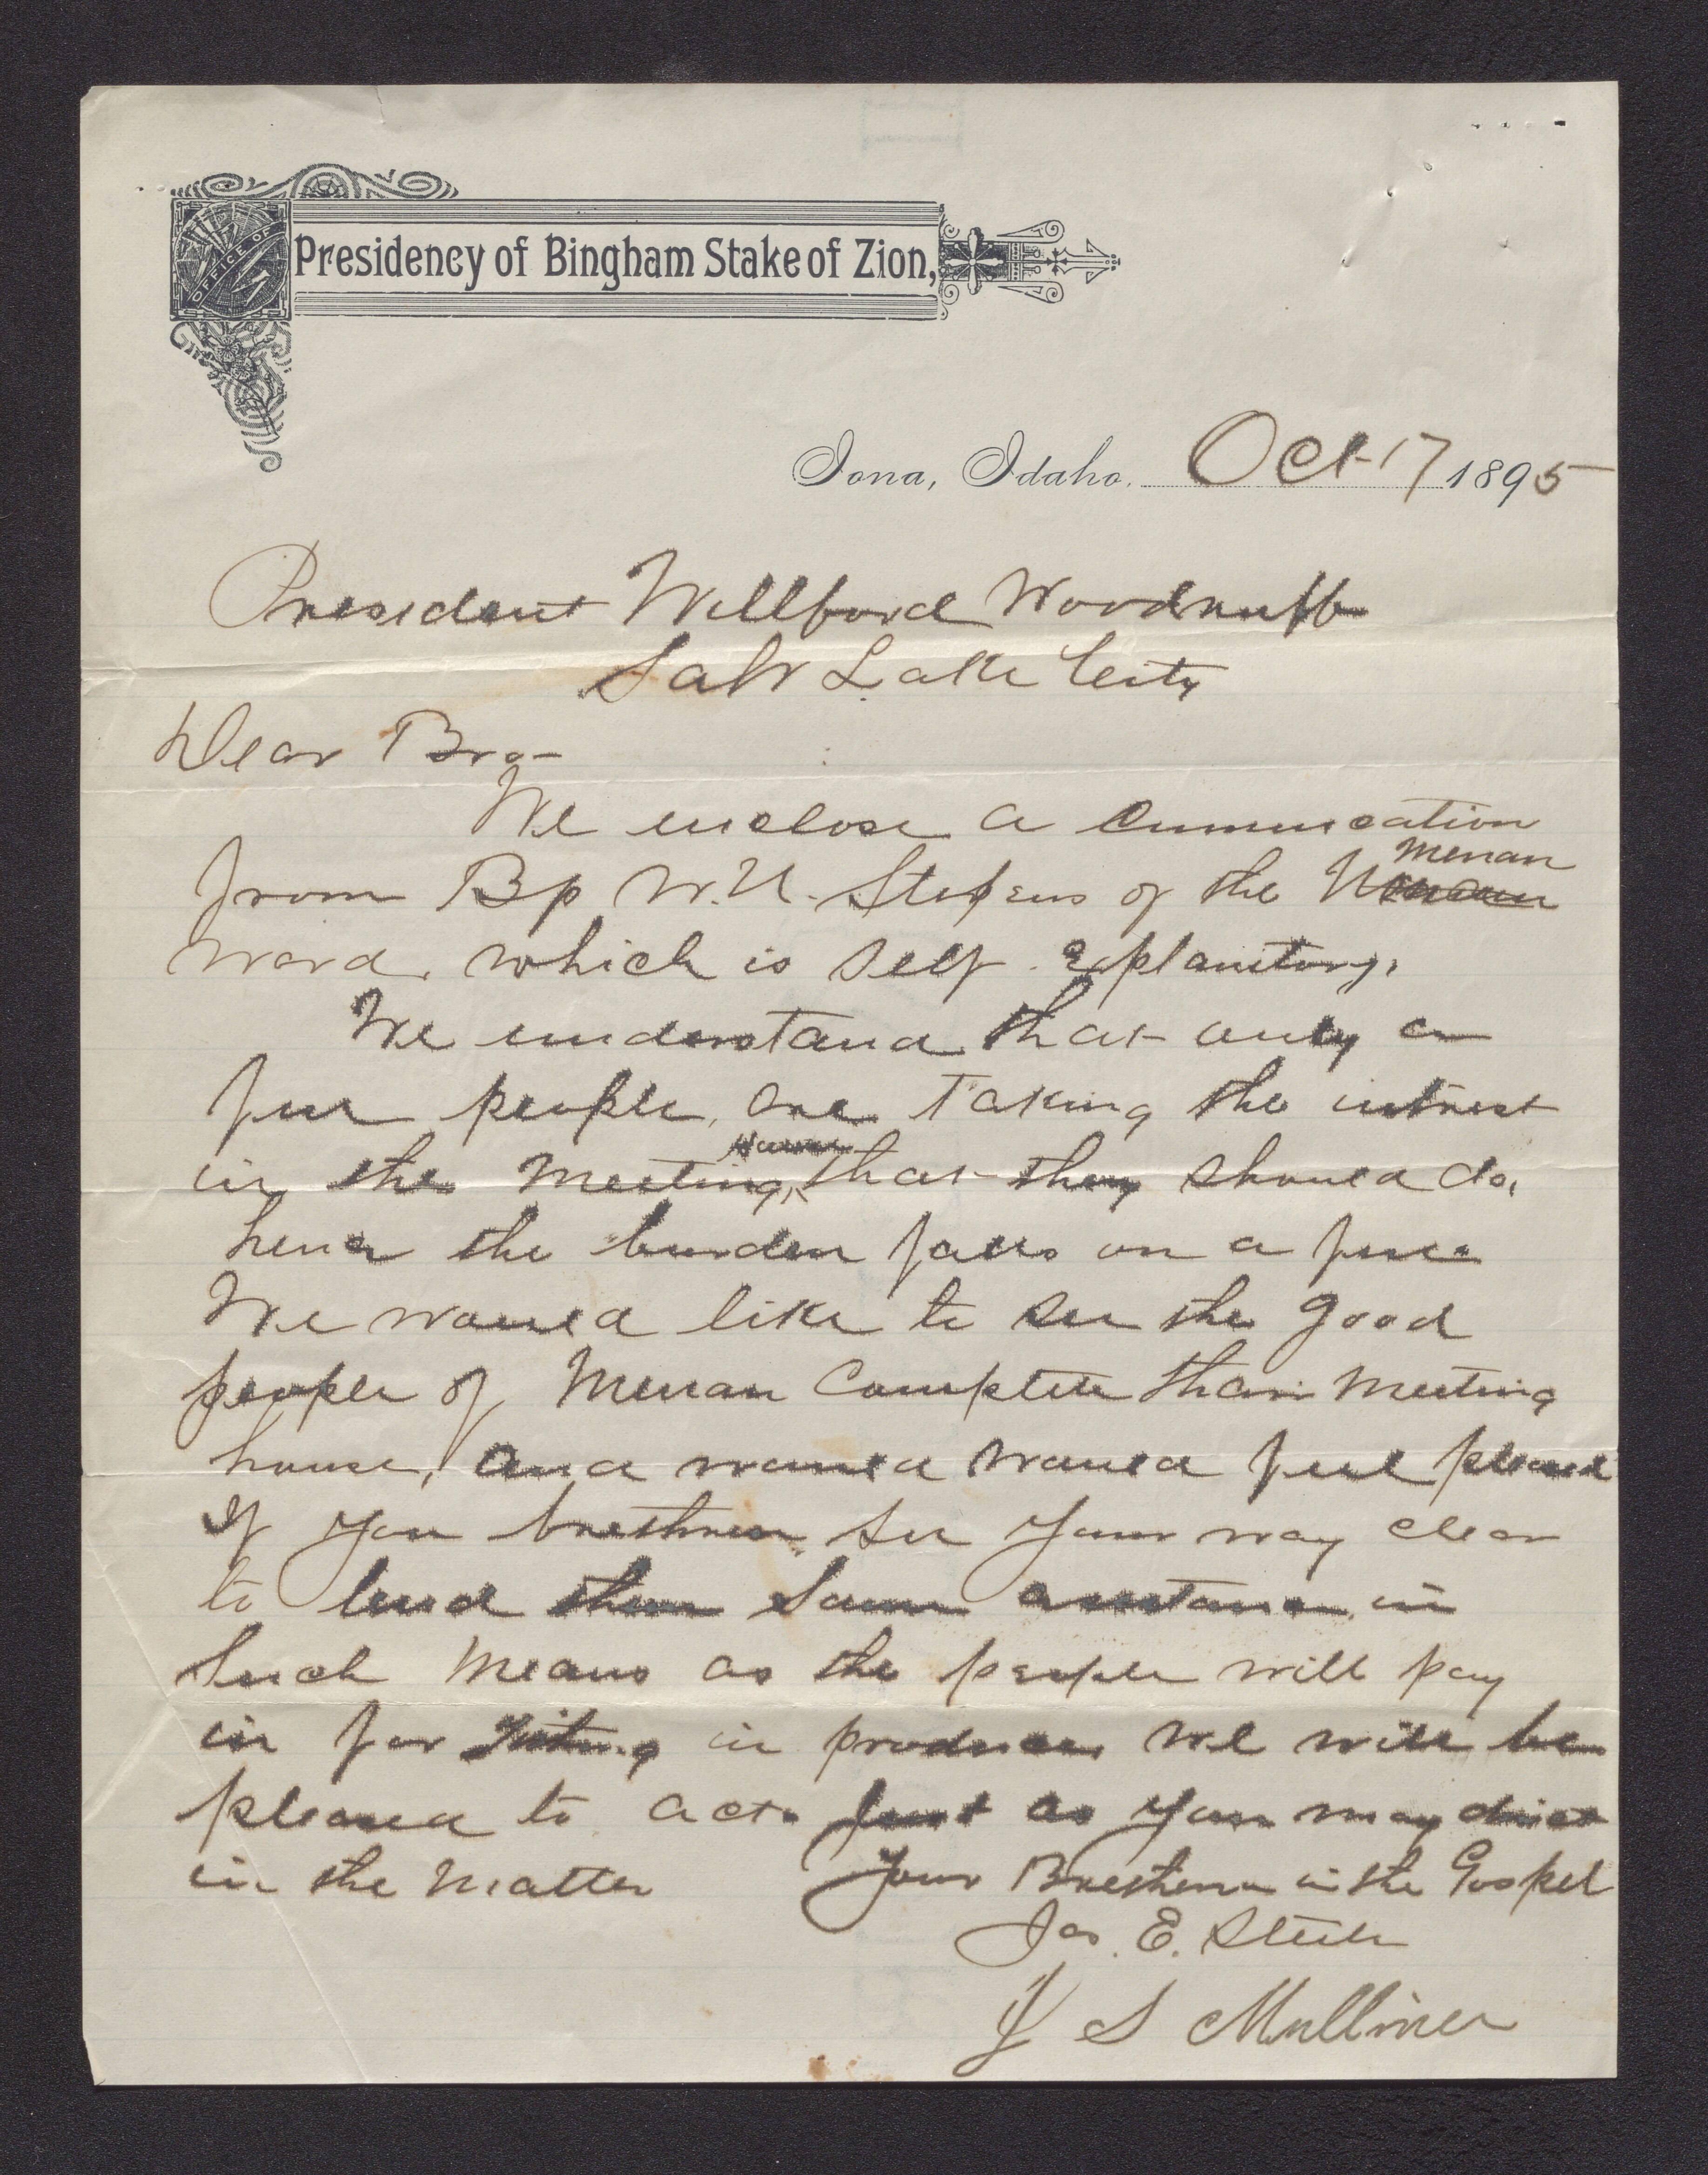 OFFICE OF
Presidency of Bingham Stake of Zion,
Iona, Idaho. Oct 17 1895
President Willford Woodruff
Salt Lake City
Dear Bro-
We enclose a
Menan
from Bp W. N. Stephens of the
Ward, which is self explanitory.
We understand that only a
few people, are taking the intrest
House
in the Meeting, that they should do,
hence the burden falls on a few.
We would like to see the good
people of Menan Complete thair Meeting
house, and would would feel pleased
If you brethren, see your way clear
to lend them some assistance, in
Such Means as the people will pay
in for Tithing in produce, we will be
pleased to act. Just as you may direct
in the Matter Your Brethern in the Gospel
Jas. E. Steele
J S Mulliner